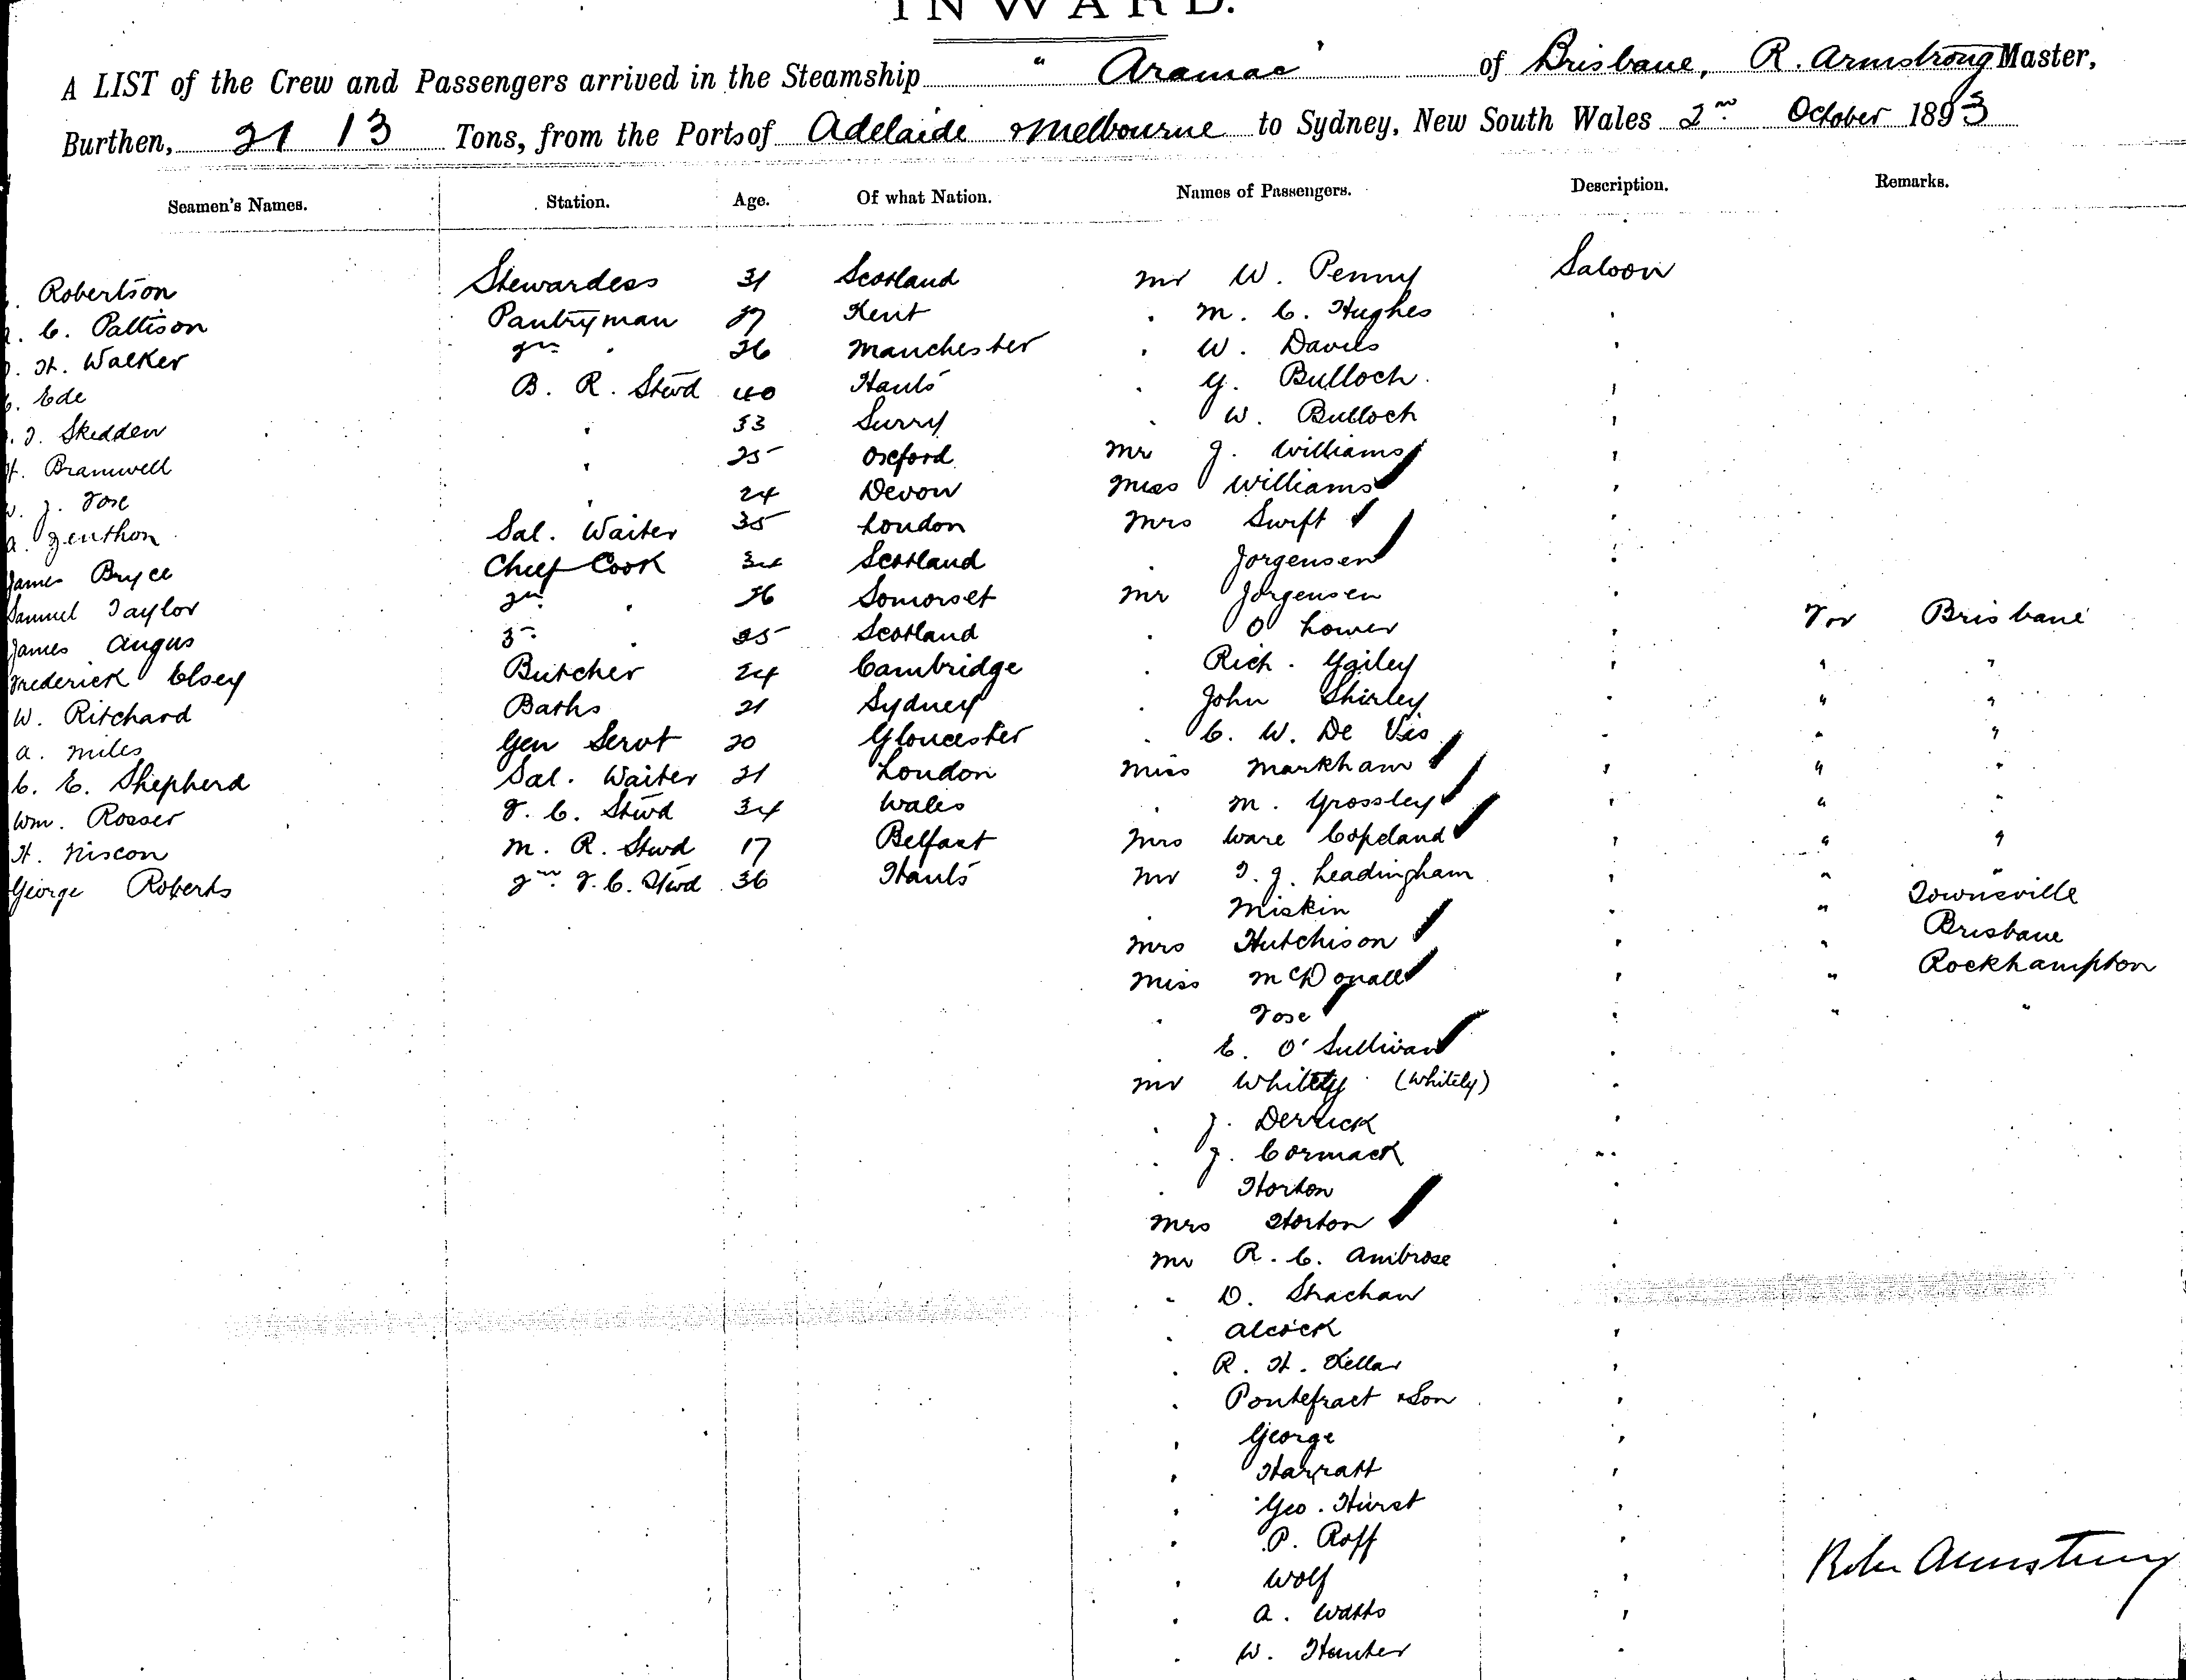 INWARD.
A LIST of the Crew and Passengers arrived in the Steamship "Aramac" of Brisbane, R. Armstrong Master,
Burthen, 2113 Tons, from the Ports of Adelaide & Melbourne to Sydney, New South Wales 2nd October 1893
Seamen's Names. Station. Age. Of what Nation. Names of Passengers. Description. Remarks.
Robertson Stewardess 31 Scotland Mr W. Penny Saloon
C. Pattison Pantryman 27 Kent " M. C. Hughes "
H. Walker 2nd " 26 Manchester " W. Davies "
Ede B. R. Stwd 40 Hants " G. Bulloch "
J. Skedden " 33 Surry " W. Bulloch "
H. Bramwell " 25 Oxford Mr J. Williams "
J. Fose " 24 Devon Miss Williams "
A. Zenthon Sal. Waiter 35 London Mrs Swift "
James Bryce Chief Cook 34 Scotland " Jorgensen "
Samuel Taylor 2nd " 26 Somerset Mr Jorgensen "
James Angus 3rd " 25 Scotland " O Lower " For Brisbane
Frederick Elsey Butcher 24 Cambridge " Rich. Gailey " " "
W. Ritchard Baths 21 Sydney " John Shirley " " "
A. Miles Gen Servt 20 Gloucester " C. W. De Vis " " "
C. E. Shepherd Sal. Waiter 21 London Miss Markham " " "
Wm. Rosser F. C. Stwd 34 Wales " M. Grossley " " "
H. Niscon M. R. Stwd 17 Belfast Mrs Ware Copeland " " "
George Roberts 2nd F. C. Stwd 36 Hants Mr T. J. Leadingham " " "
" Miskin " " Townsville
Mrs Hutchison " " Brisbane
Miss McDonall " " Rockhampton
" Fose " " "
" E. O'Sullivan "
Mr Whitely (Whitely) "
" J. Derrick "
" J. Cormack "
" Horton "
Mrs Horton "
Mr R. C. Ambrose "
" D. Strachan "
" Alcock "
" R. H. Kellar "
" Pontefract & Son "
" George "
" Harratt "
" Geo. Hurst "
" P. Roff "
" Wolf "
" A. Watts "
" W. Hunter "
Robt Armstrong